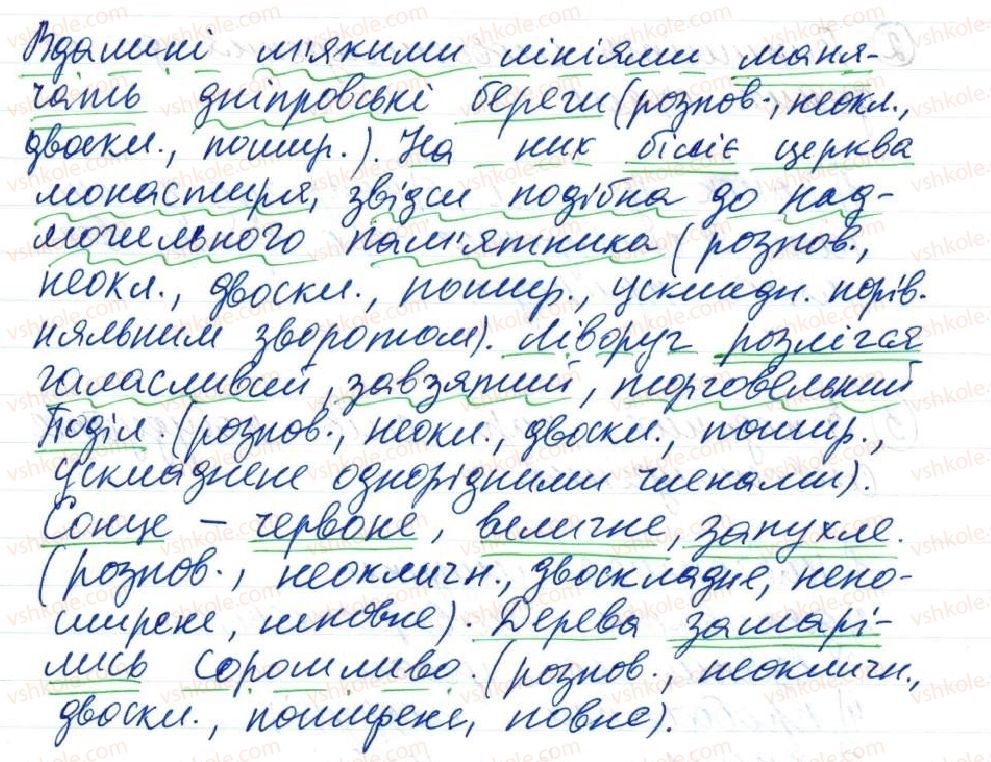 Вдалині м'якими лініями маня-
чать дніпровські береги (розпов., неокл.,
двоскл., пошир.). На них біліє церква
монастиря, звідси подібна до над-
могильного пам'ятника (розпов.,
неокл., двоскл., пошир., ускладн. порів.
няльним зворотом). Ліворуч розлігся
галасливий, завзятий, торговельний
Поділ. (розпов., неокл., двоскл., пошир.,
ускладнене однорідними членами).
Сонце – червоне, велична, запухле.
(розпов., неокличн., двоскладне, непо-
ширене, повне). Дерева зашарі-
лись соромливо. (розпов., неокличн.,
двоскл., поширене, повне).